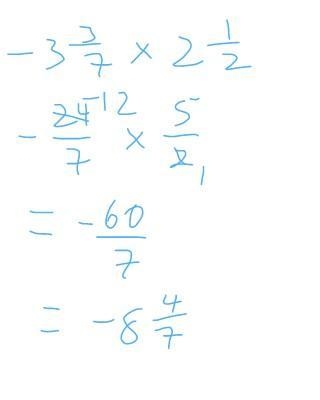 -3 3/7 × 2 1/2
- 24 -12/7 × 5/2 1
= -60/7
= -8 4/7